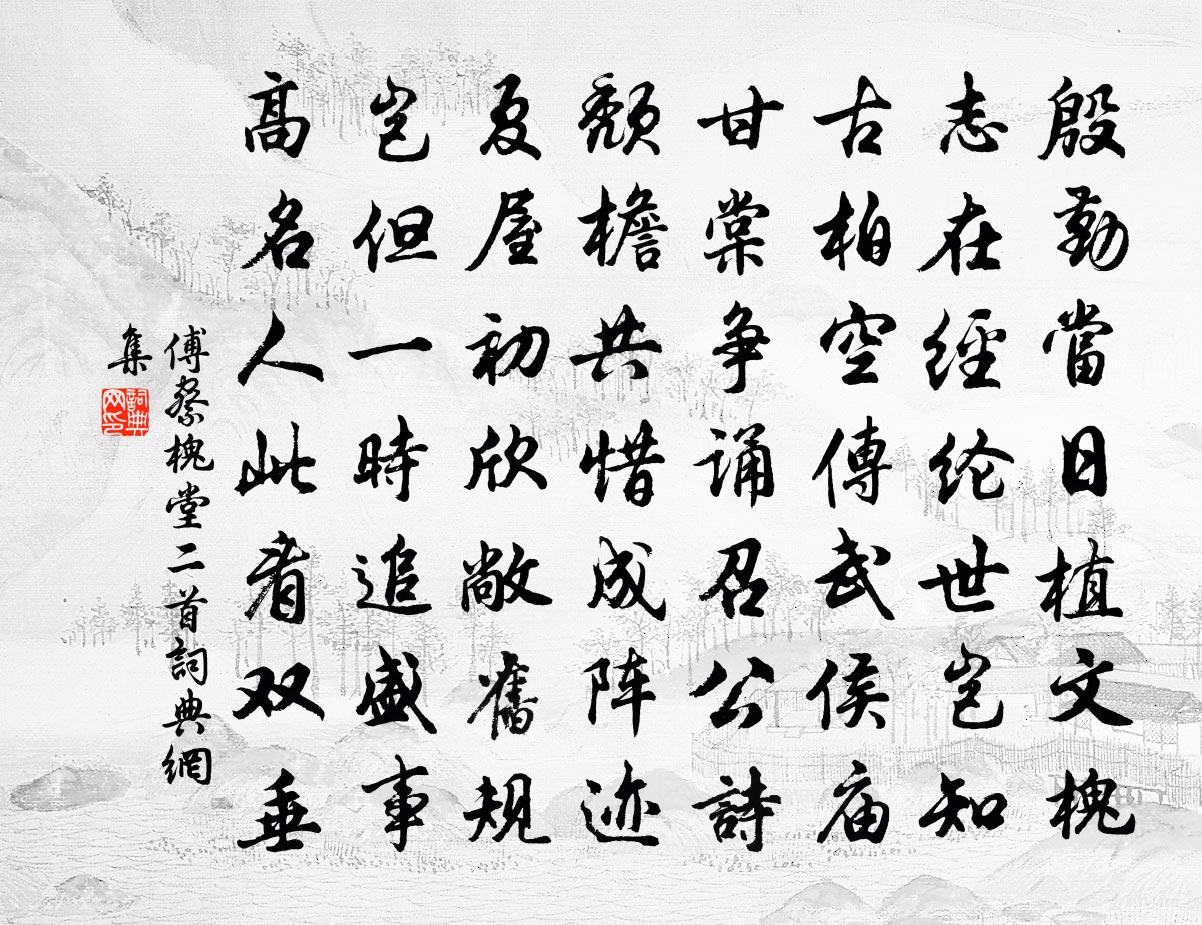 殷勤當日植文槐
志在經纶世岂知
古柏空傳武侯庙
甘棠争诵召公詩
颓檐共惜成阵迹
夏屋初欣敞舊規
岂但一時追盛事
高名人此看双垂
傅察槐堂二首詞典網
集
詞典网印